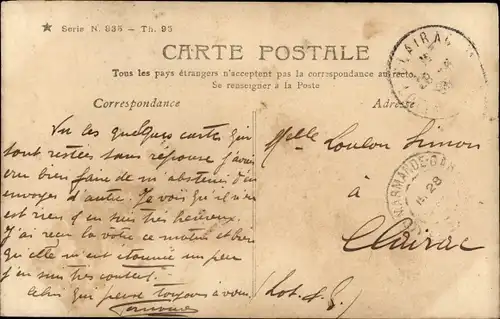 ★ Serie N. 835 – Th. 95
CARTE POSTALE
Tous les pays étrangers n'acceptent pas la correspondance au recto.
Se renseigner à la Poste
Correspondance
Adresse
CLAIRAC
Vu les quelques cartes qui
sont restées sans réponse j'avais
cru bien faire de m'abstenir d'en
envoyer d'autre. Je vois qu'il n'en
est rien j'en suis très heureux.
J'ai reçu la votre ce matin et bien
qu'elle m'ait étonné un peu
j'en suis très content.
Celui qui pense toujours à vous
Melle Loulou Simon
à
Clairac
(Lot. & G.)
MARMANDE